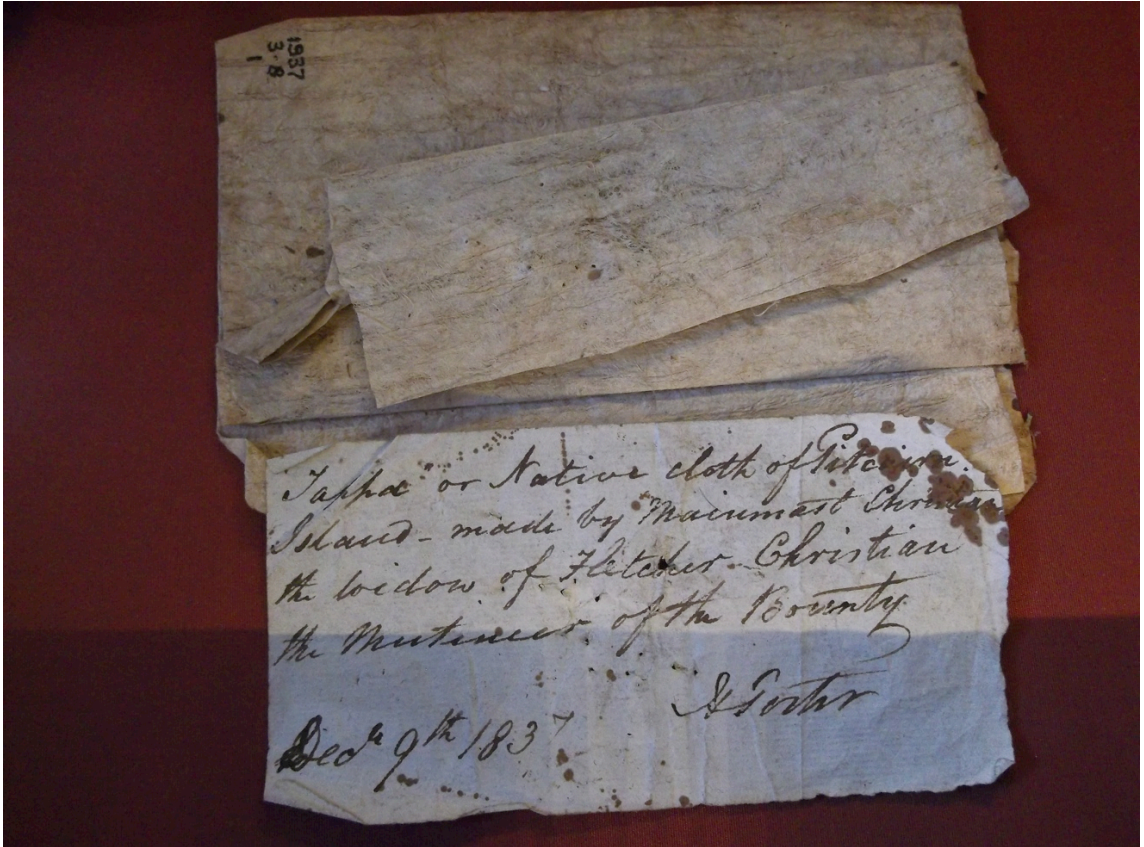 1937
3·8
1
Tappa or Native cloth of Pitcairn.
Island - made by Mainmast Christian
the widow of Fletcher Christian
the Mutineer of the Bounty
Decr 9th 1837